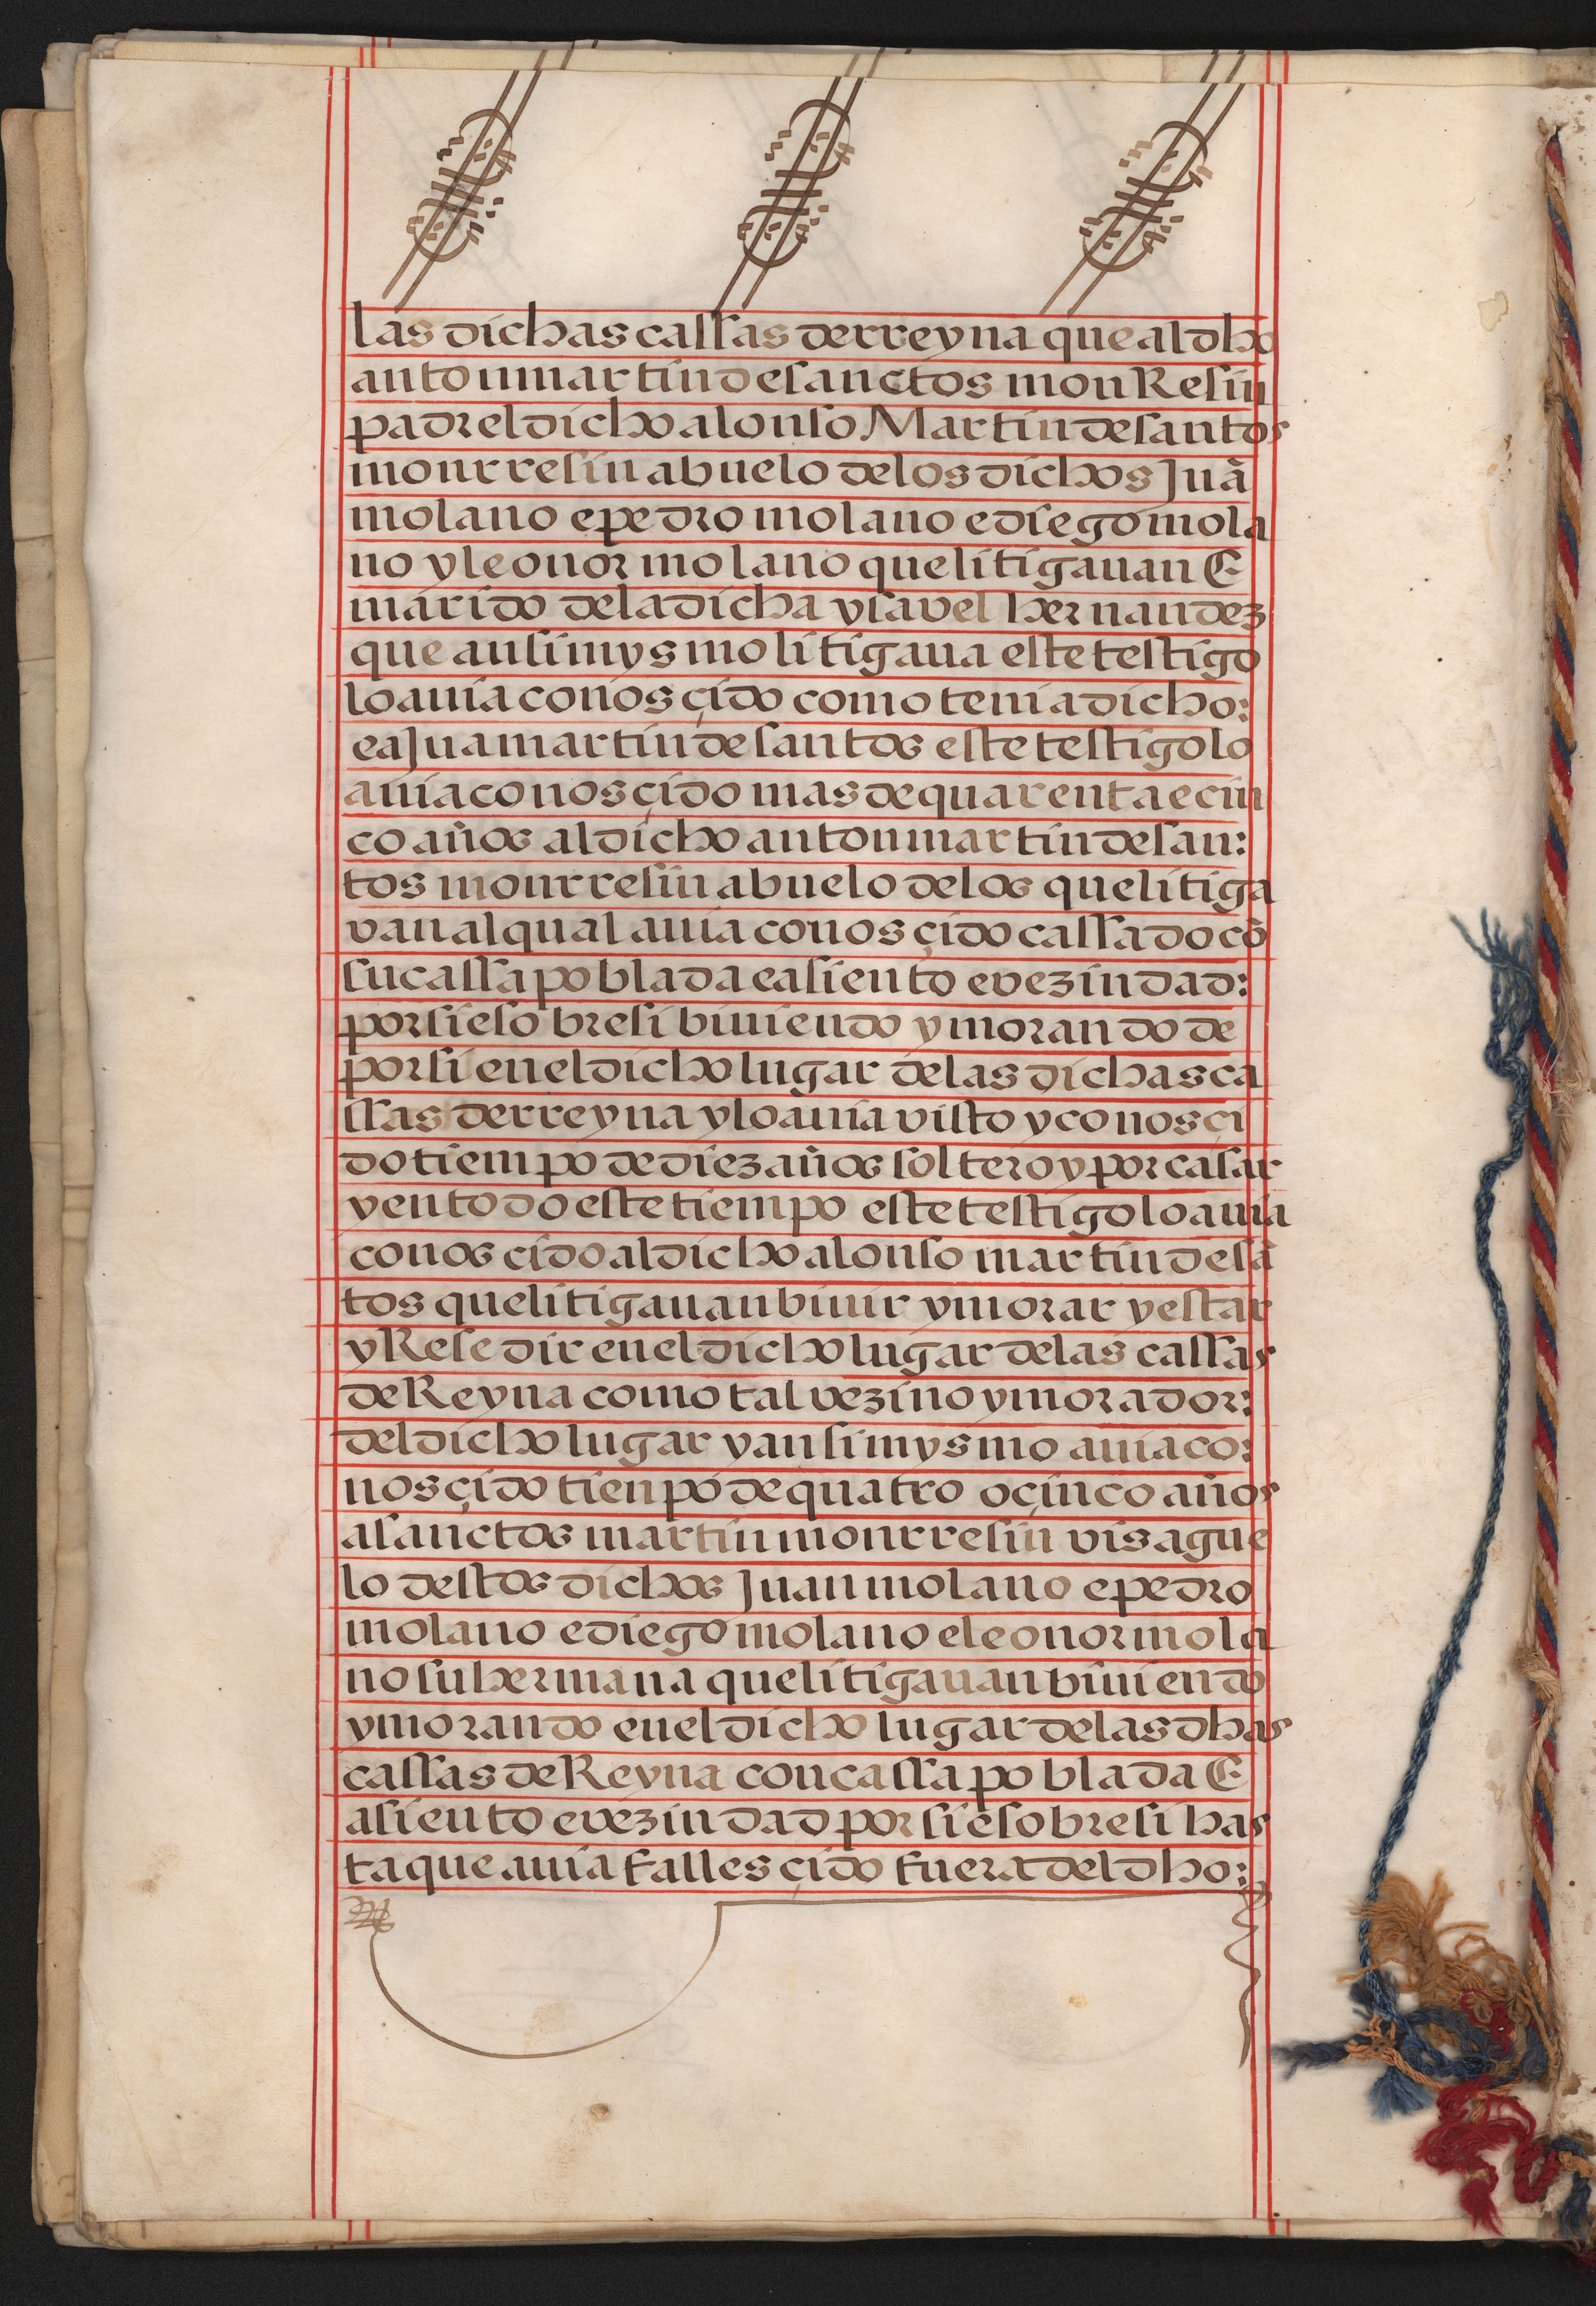 las dichas cassas de rreyna que al dho
anton martin de sanctos monResin
padre el dicho alonso Martin de santos
monrresin abuelo de los dichos Juã
molano e pedro molano e diego mola
no y leonor molano que litigauan E
marido de la dicha ysavel hernandez
que ansimysmo litigaua este testigo
lo auia conosçido como tenia dicho:
e a Jua martin de santos este testigo lo
auia conosçido mas de quarenta e cin
co años al dicho anton martin de san:
tos monrresin abuelo de los que litiga
van al qual auia conosçido cassado cõ
su cassa poblada e asiento e vezindad:
por si e sobre si biuiendo y morando de
por si en el dicho lugar de las dichas ca
ssas de rreyna y lo auia visto y conosçi
do tiempo de diez años soltero y por casar
y en todo este tiempo este testigo lo auia
conoscido al dicho alonso martin de sã
tos que litigauan biuir y morar y estar
y Resedir en el dicho lugar de las cassas
de Reyna como tal vezino y morador:
del dicho lugar y ansimysmo auia co:
nosçido tienpo de quatro o çinco años
a sanctos martin monrresin visague
lo destos dichos Juan molano e pedro
molano e diego molano e leonor mola
no su hermana que litigauan biuiendo
y morando en el dicho lugar de las dhas
cassas de Reyna con cassa poblada E
asiento e vezindad por si e sobre si has
ta que auia fallesçido fuera del dho: